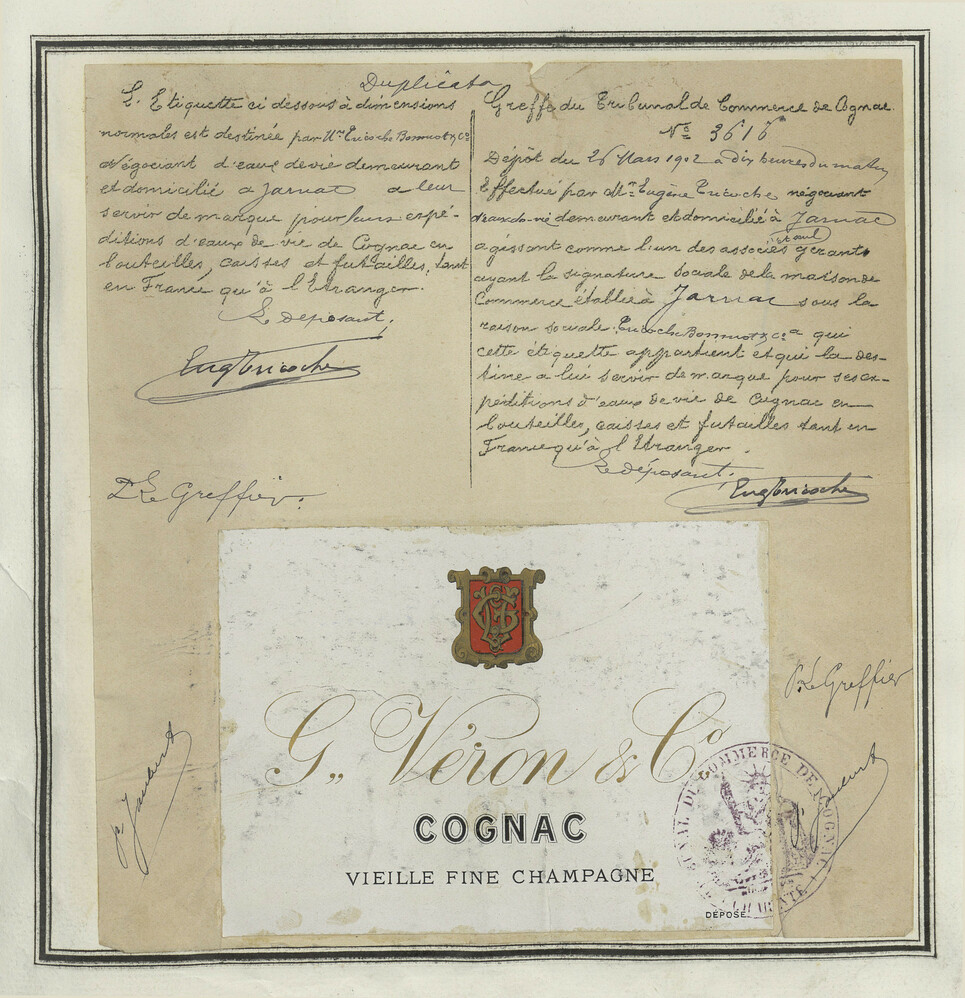 Duplicata
L'Etiquette ci dessous à dimensions
normales est destinée par Mrs Tricoche Bonniot & Co
Négociant d'eaux de vie demeurant
et domicilié à Jarnac a leur
servir de marque pour leurs expé-
ditions d'eaux de vie de Cognac en
bouteilles, caisses et futailles, tant
en France qu'à l'Etranger.
Le déposant,
Eug Tricoche
Le Greffier.
Greffe du Tribunal de Commerce de Cognac
No 3616
Dépôt du 26 Mars 1902 à dix heures du matin
Effectué par Mr Eugène Tricoche négociant
demeurant et domicilié à Jarnac
agissant comme l'un des associés gérants
ayant la signature sociale de la maison de
Commerce établie à Jarnac sous la
raison sociale Tricoche Bonniot & Ca qui
cette étiquette appartient et qui la des-
tine a lui servir de marque pour ses ex-
péditions d'eaux de vie de Cognac en
bouteilles, caisses et futailles tant en
France qu'à l'Etranger.
Le déposant,
Eug Tricoche
G. Véron & Co
COGNAC
VIEILLE FINE CHAMPAGNE
DÉPOSÉ
Le Greffier
TRIBUNAL DE COMMERCE DE COGNAC
CHARENTE